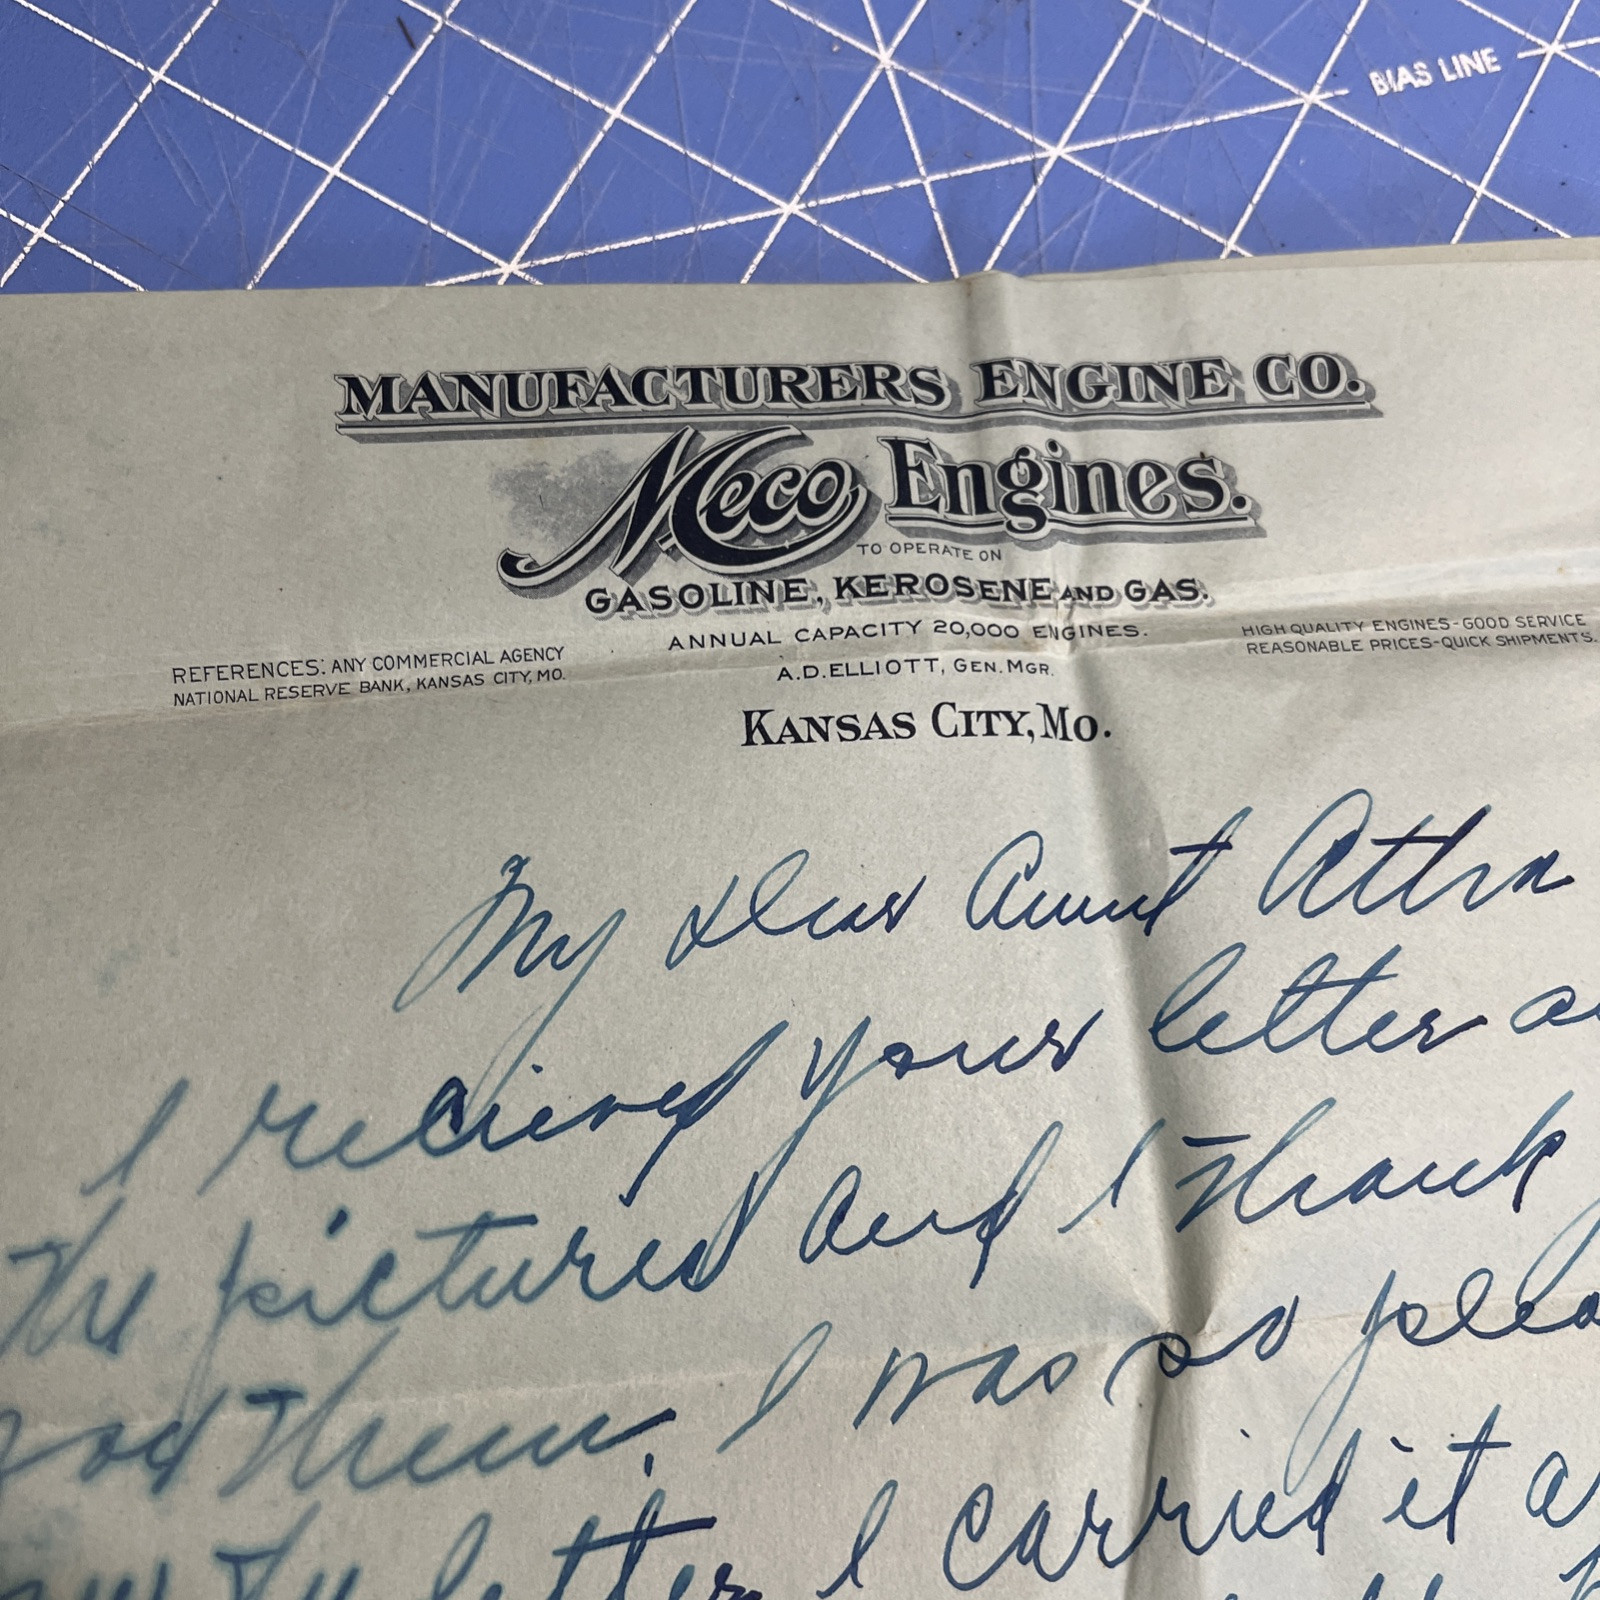 BIAS LINE
MANUFACTURERS ENGINE CO.
Meco Engines.
TO OPERATE ON
GASOLINE, KEROSENE AND GAS.
ANNUAL CAPACITY 20,000 ENGINES.
A.D. ELLIOTT, GEN. MGR.
REFERENCES: ANY COMMERCIAL AGENCY
NATIONAL RESERVE BANK, KANSAS CITY, MO.
HIGH QUALITY ENGINES-GOOD SERVICE
REASONABLE PRICES-QUICK SHIPMENTS.
KANSAS CITY, MO.
My dear Aunt
I recieved your letter
the pictures and I thank
for them. I was so
letter I carried it